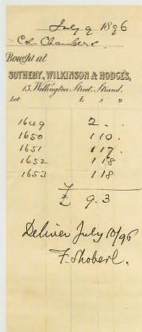 July 9 1896
Col Chambers.
Bought at
SOTHEBY, WILKINSON & HODGES,
13, Wellington Street, Strand.
Lot £ s d
1649 2 . .
1650 1 10 .
1651 1 17 .
1652 1 18
1653 1 18
£ 9.3
Deliver July 10/96
F. Shoberl.